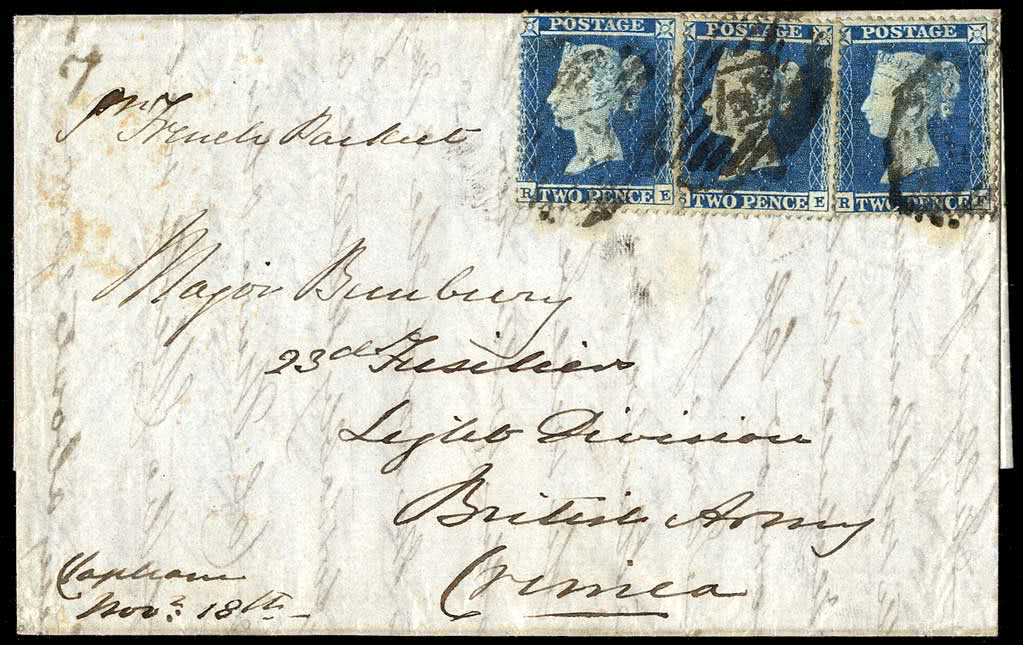 POSTAGE POSTAGE POSTAGE
R TWO PENCE E TWO PENCE E R TWO PENCE F
pr French Packet
Major Bunbury
23d Fusiliers
Light Division
British Army
Crimea
Clapham
Novr. 18th